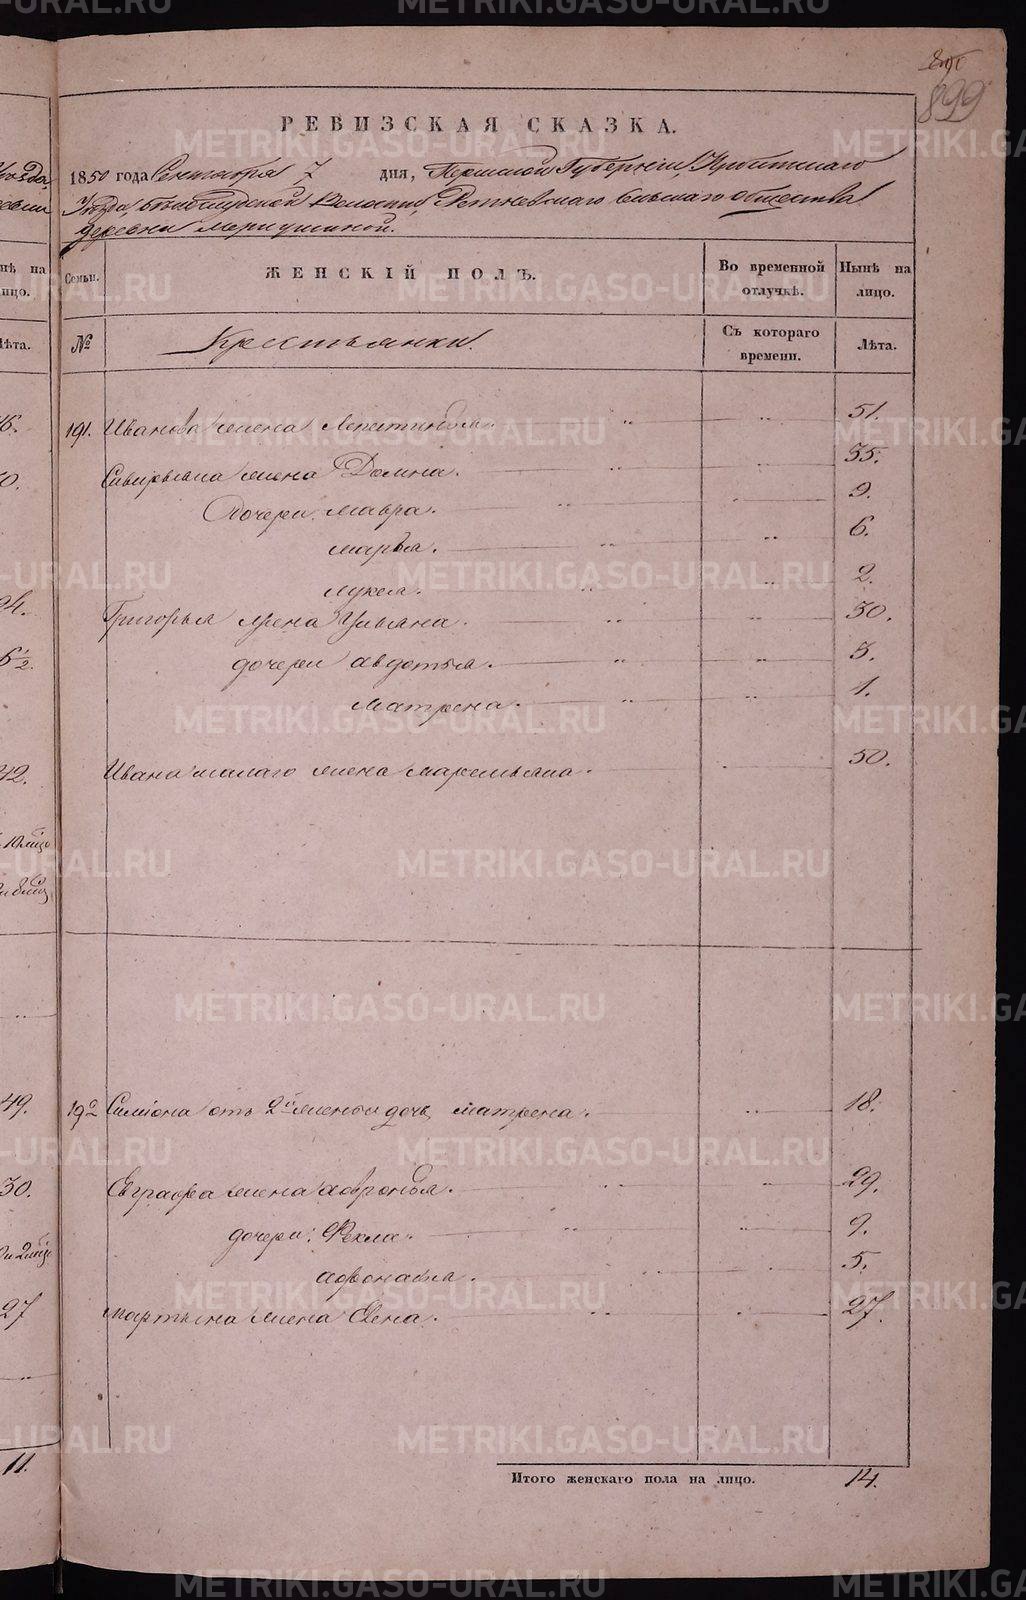 899
РЕВИЗСКАЯ СКАЗКА.
1850 года Сентября 7 дня, Пермской Губернии, Ирбитскаго
Уѣзда Белослудской Волости, Ретневскаго сельскаго общества
деревни Меркушиной.
Семьи. ЖЕНСКІЙ ПОЛЪ. Во временной отлучкѣ. Нынѣ на лицо.
№ Крестьянки. Съ котораго времени. Лѣта.
191. Ивана жена 51.
жена Домна. 35.
Дочери: Мавра. 9.
Марья. 6.
Лукея. 2.
Григорья жена Ульяна. 30.
дочери Авдотья. 3.
Матрена. 1.
Ивана малаго жена Маремьяна. 50.
192 Симіона отъ 2й жены дочь Матрена. 18.
Евграфа жена Афронья. 29.
дочери: Фекла. 9.
Афонасья. 5.
Мартына жена Елена. 27.
Итого женскаго пола на лицо. 14.
METRIKI.GASO-URAL.RU